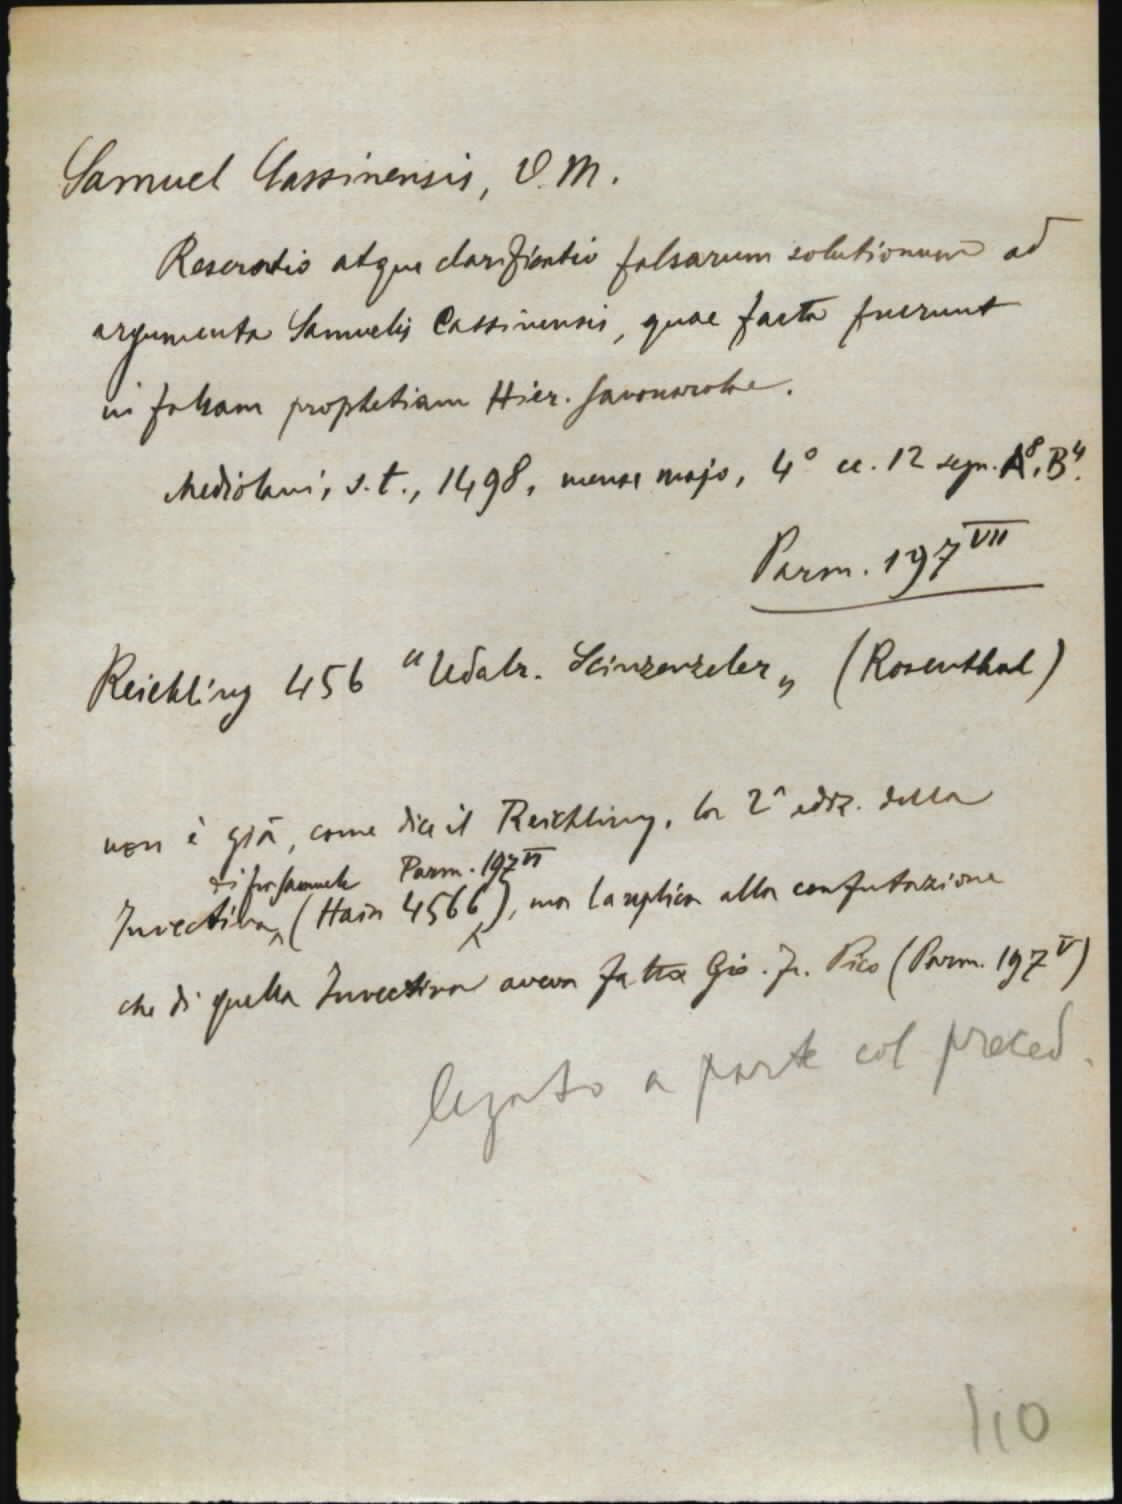 Samuel Cassinensis, O. M.
Reseratio atque clarificatio falsarum solutionum ad
argumenta Samuelis Cassinensis, quae facta fuerunt
in falsam prophetiam Hier. Savonarolae.
Mediolani, s. t., 1498, mense majo, 4° cc. 12 segn. A⁸, B⁴.
Parm. 197 VII
Reichling 456 "Udalr. Scinzenzeler„ (Rosenthal)
non è già, come dice il Reichling, la 2ª ediz. della
di fra Samuele Parm. 197 VI
Invectiva (Hain 4566), ma la replica alla confutazione
che di quella Invectiva aveva fatta Gio. Fr. Pico (Parm. 197 V)
legato a parte col preced.
110